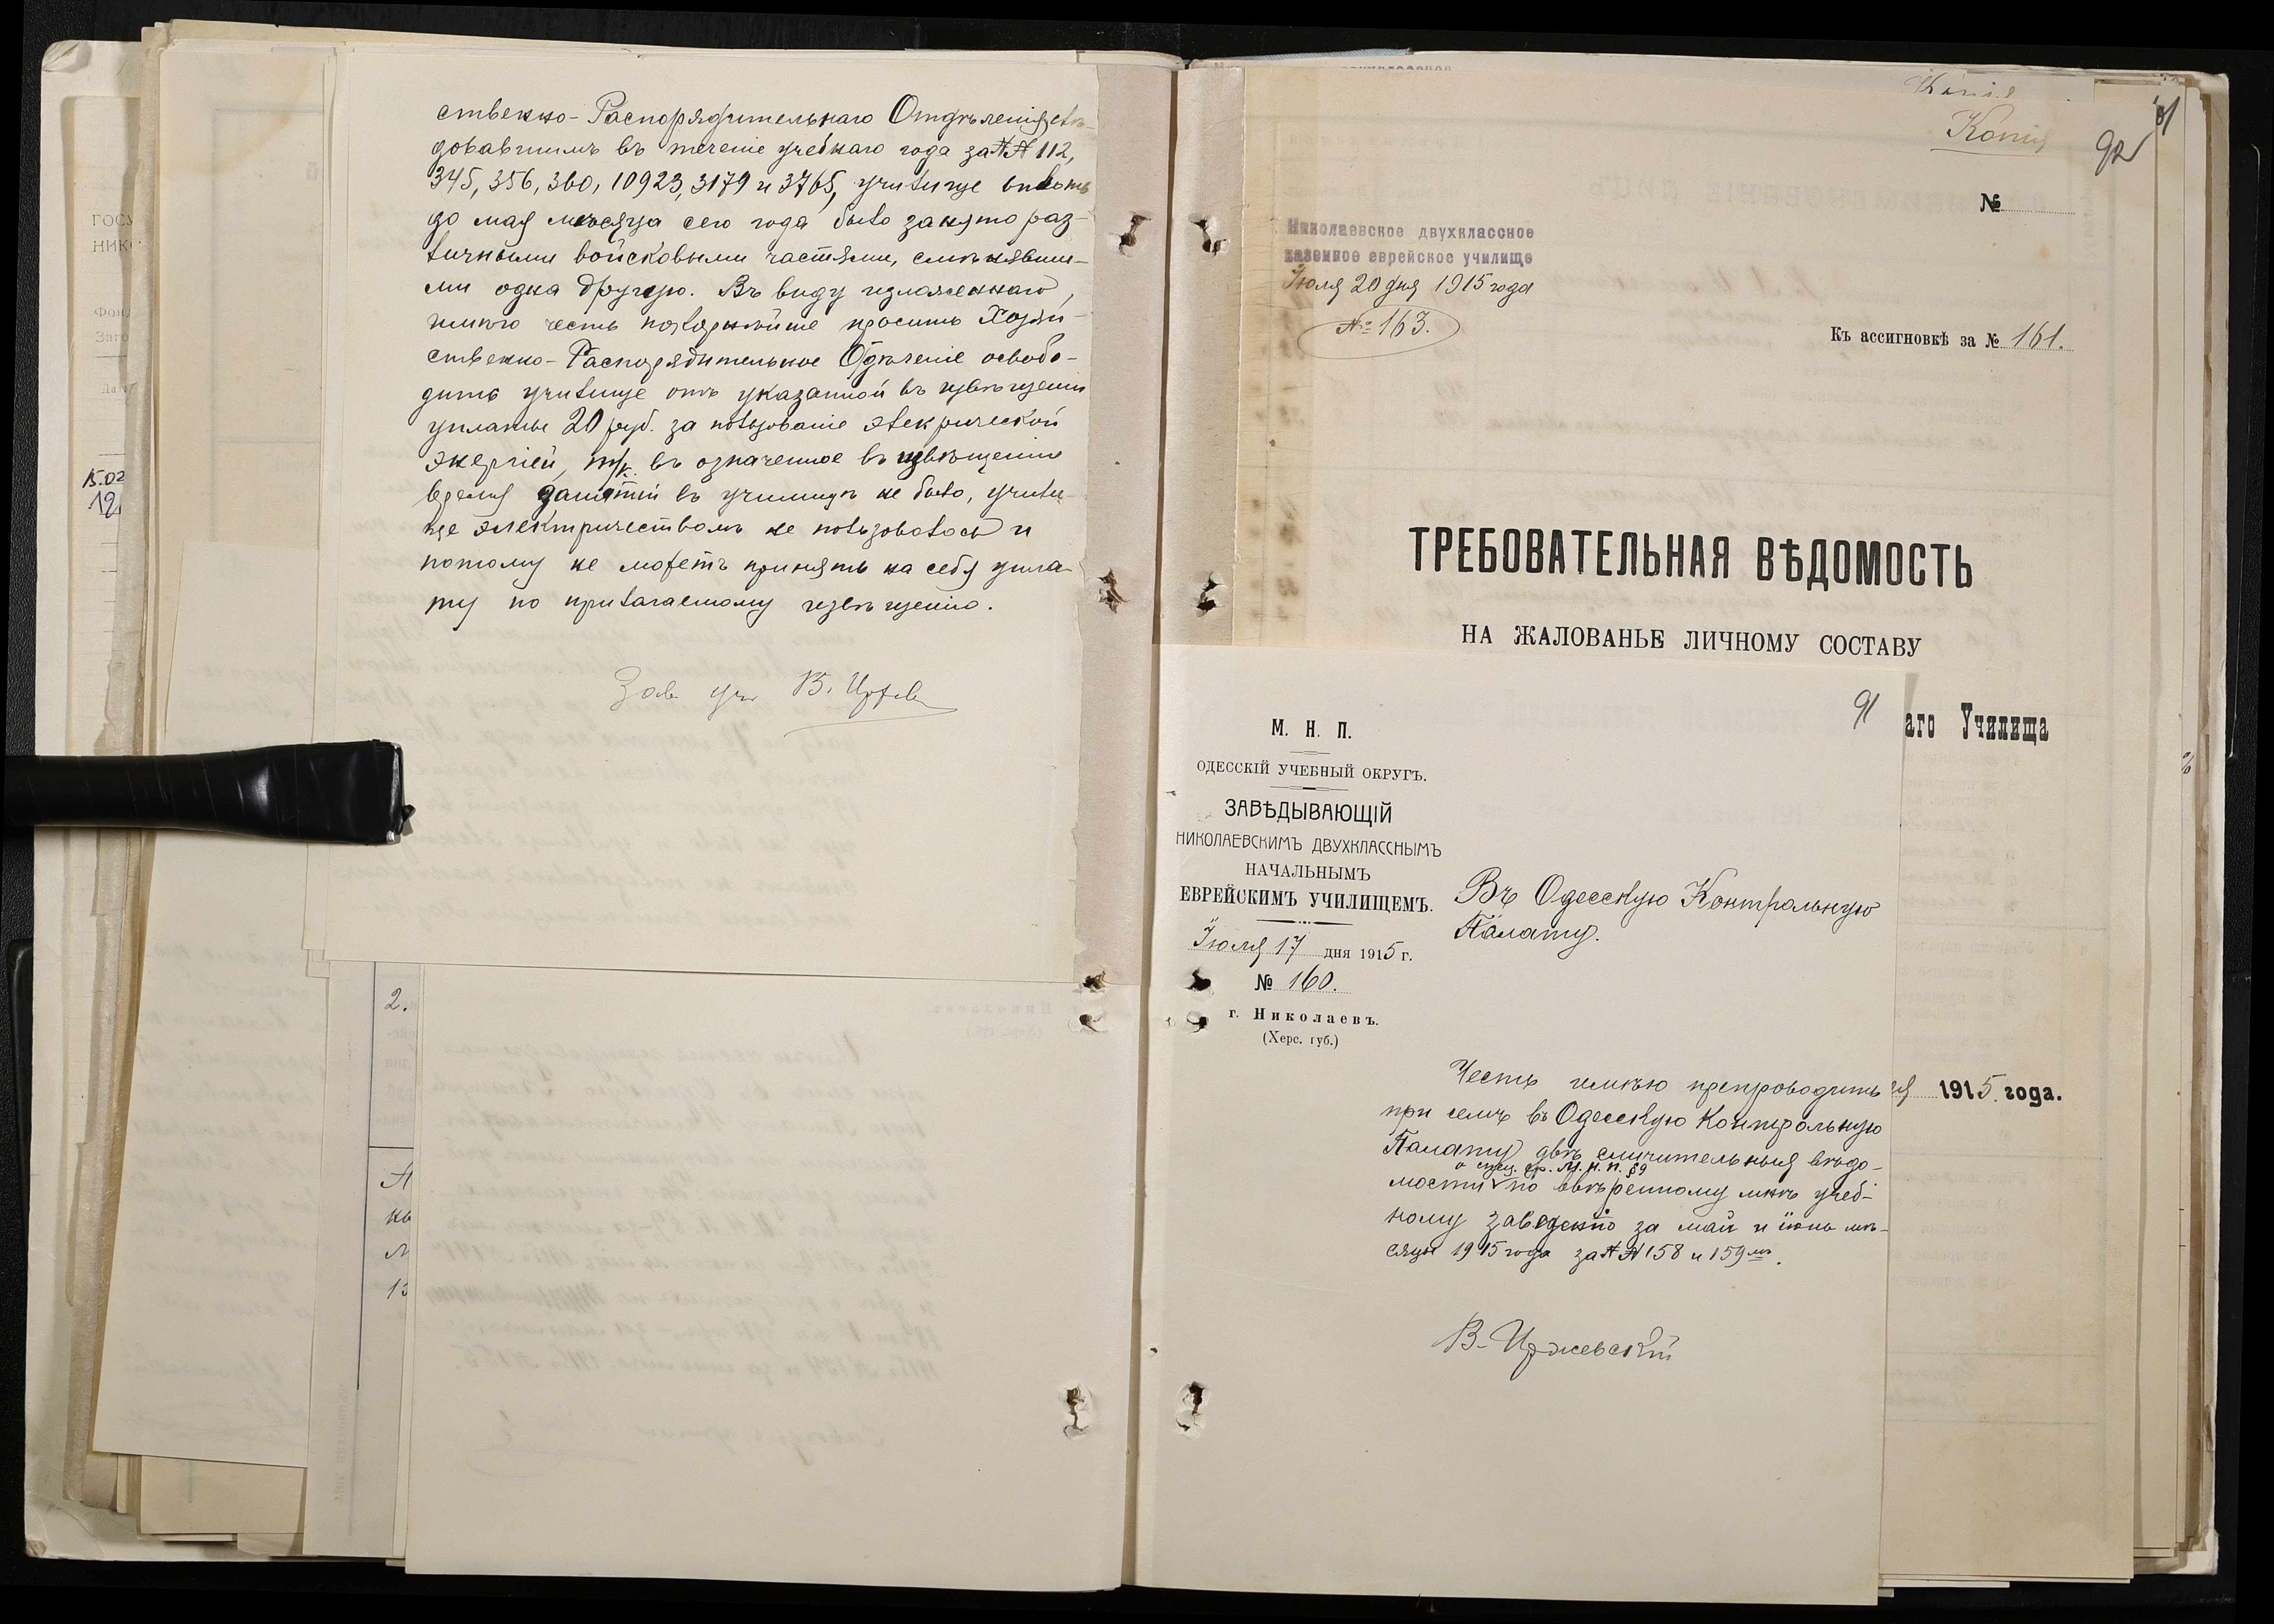 ственно-Распорядительнаго Отдѣленія, слѣ-
довавшимъ въ теченіе учебнаго года за №№ 112,
345, 356, 360, 10923, 3179 и 3765, училище вплоть
до мая мѣсяца сего года было занято раз-
личными войсковыми частями, смѣнявши-
ми одна другую. Въ виду изложеннаго,
имѣю честь покорнѣйше просить Хозяй-
ственно-Распорядительное Отдѣленіе освобо-
дить училище отъ указанной въ извѣщеніи
уплаты 20 руб. за пользованіе электрической
энергіей, т/к. въ означенное въ извѣщеніи
время занятій въ училищѣ не было, учили-
ще электричествомъ не пользовалось и
потому не можетъ принять на себя упла-
ту по прилагаемому извѣщенію.
Зав. уч. В.
15.02
12
2.
Копія
Копія
92
№
Николаевское двухклассное
казенное еврейское училище
Іюля 20 дня 1915 года
№ 163.
Къ ассигновкѣ за № 161.
ТРЕБОВАТЕЛЬНАЯ ВѢДОМОСТЬ
НА ЖАЛОВАНЬЕ ЛИЧНОМУ СОСТАВУ
аго Училища
1915 года.
91
М. Н. П.
ОДЕССКІЙ УЧЕБНЫЙ ОКРУГЪ.
ЗАВѢДЫВАЮЩІЙ
НИКОЛАЕВСКИМЪ ДВУХКЛАССНЫМЪ
НАЧАЛЬНЫМЪ
ЕВРЕЙСКИМЪ УЧИЛИЩЕМЪ.
Іюля 17 дня 1915 г.
№ 160.
г. Николаевъ.
(Херс. губ.)
Въ Одесскую Контрольную
Палату.
Честь имѣю препроводить
при семъ въ Одесскую Контрольную
Палату двѣ сличительныя вѣдо-
о спец. ср. М. Н. П. §9
мости по ввѣренному мнѣ учеб-
ному заведенію за май и іюнь мѣ-
сяцы 1915 года за №№ 158 и 159мъ.
В. Иржевскій